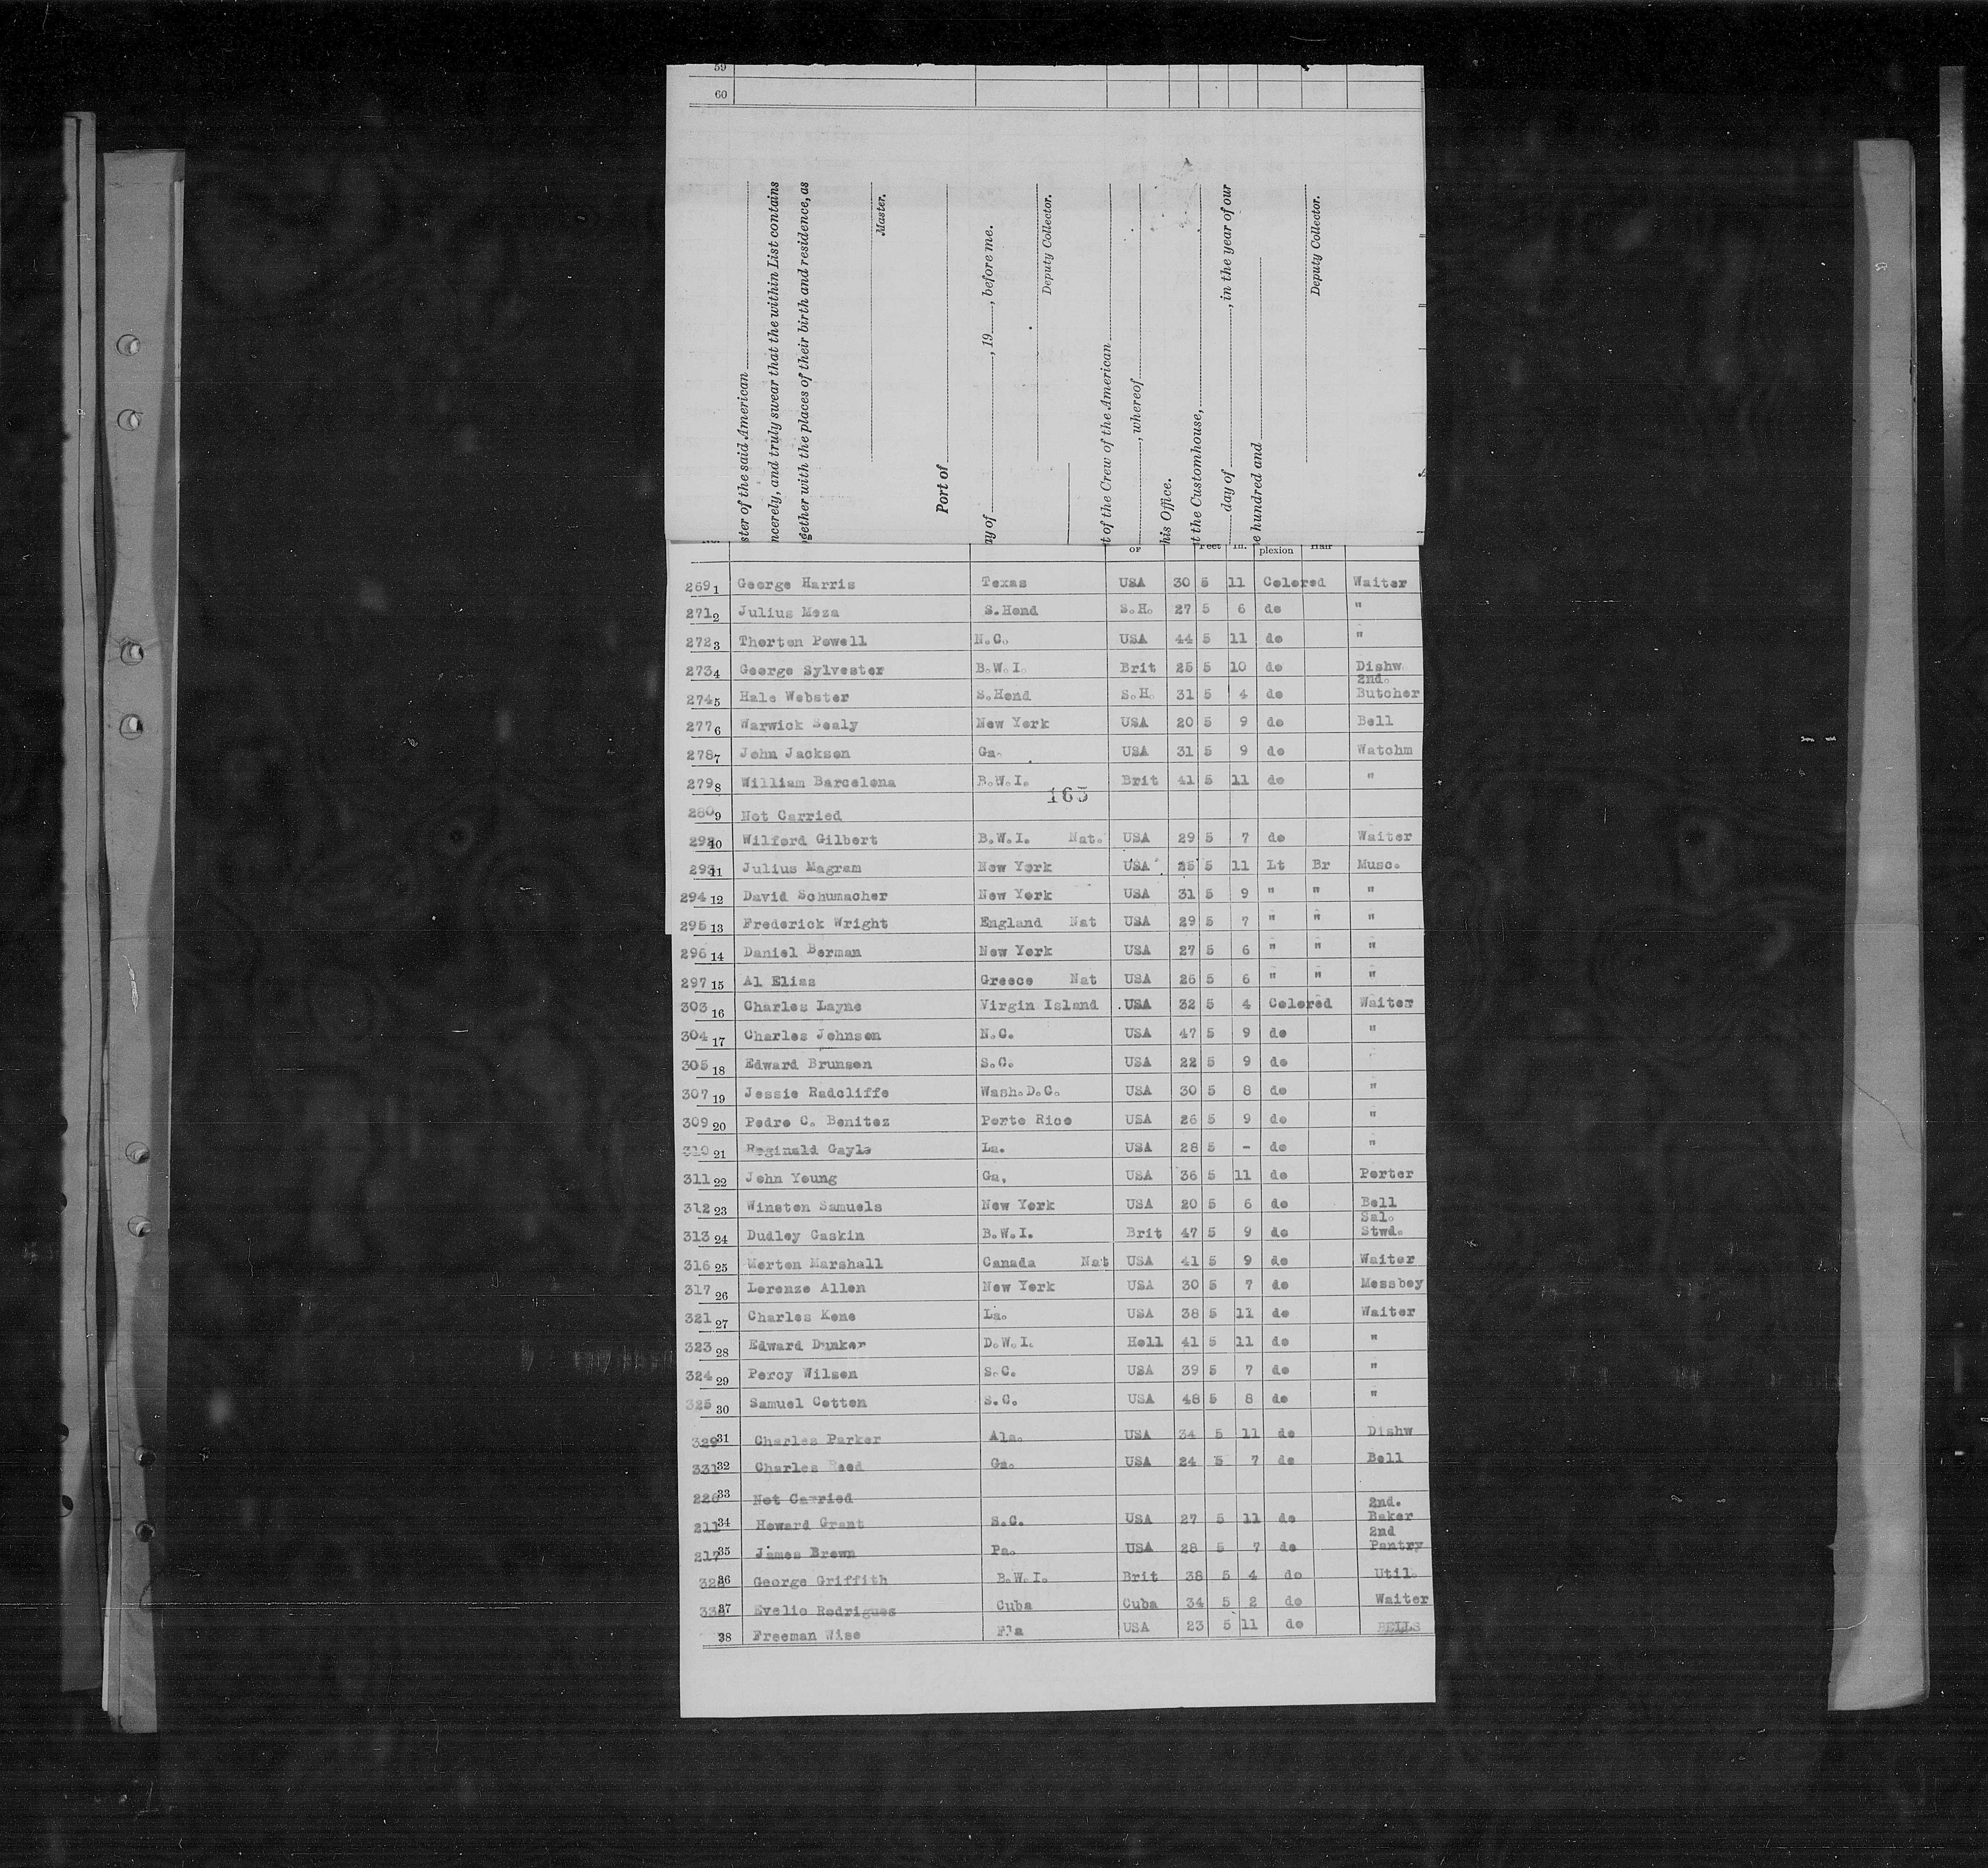 59
60
ster of the said American
ncerely, and truly swear that the within List contains
gether with the places of their birth and residence, as
Master.
Port of
ay of , 19 , before me.
Deputy Collector.
t of the Crew of the American
, whereof
his Office.
t the Customhouse,
day of , in the year of our
e hundred and
Deputy Collector.
OF Feet In. plexion Hair
269 1 George Harris Texas USA 30 5 11 Colored Waiter
271 2 Julius Meza S.Hond S.H. 27 5 6 do "
272 3 Thorton Powell N.C. USA 44 5 11 do "
273 4 George Sylvester B.W.I. Brit 25 5 10 do Dishw.
274 5 Hale Webster S.Hond S.H. 31 5 4 do 2nd. Butcher
277 6 Warwick Sealy New York USA 20 5 9 do Bell
278 7 John Jackson Ga. USA 31 5 9 do Watchm
279 8 William Barcelona B.W.I. Brit 41 5 11 do "
163
280 9 Not Carried
10 Wilford Gilbert B.W.I. Nat. USA 29 5 7 do Waiter
11 Julius Magram New York USA 25 5 11 Lt Br Musc.
294 12 David Schumacher New York USA 31 5 9 " " "
295 13 Frederick Wright England Nat USA 29 5 7 " " "
296 14 Daniel Berman New York USA 27 5 6 " " "
297 15 Al Elias Greece Nat USA 26 5 6 " " "
303 16 Charles Layne Virgin Island USA 32 5 4 Colored Waiter
304 17 Charles Johnson N.C. USA 47 5 9 do "
305 18 Edward Brunson S.C. USA 22 5 9 do
307 19 Jessie Radcliffe Wash.D.C. USA 30 5 8 do "
309 20 Pedro C. Benitez Porto Rico USA 26 5 9 do "
310 21 Reginald Gayle La. USA 28 5 - do "
311 22 John Young Ga, USA 36 5 11 do Porter
312 23 Winston Samuels New York USA 20 5 6 do Bell
313 24 Dudley Gaskin B.W.I. Brit 47 5 9 do Sal. Stwd.
316 25 Morton Marshall Canada Nat USA 41 5 9 do Waiter
317 26 Lorenzo Allen New York USA 30 5 7 do Messboy
321 27 Charles Kone La. USA 38 5 11 do Waiter
323 28 Edward Dunker D.W.I. Holl 41 5 11 do "
324 29 Percy Wilson S.C. USA 39 5 7 do "
325 30 Samuel Cotton S.C. USA 48 5 8 do "
329 31 Charles Parker Ala. USA 34 5 11 do Dishw
331 32 Charles Reed Ga. USA 24 5 7 do Bell
33 Not Carried
211 34 Howard Grant S.C. USA 27 5 11 do 2nd. Baker
217 35 James Brown Pa. USA 28 5 7 do 2nd Pantry
36 George Griffith B.W.I. Brit 38 5 4 do Util.
37 Evelio Rodrigues Cuba Cuba 34 5 2 do Waiter
38 Freeman Wise Fla USA 23 5 11 do BELLS